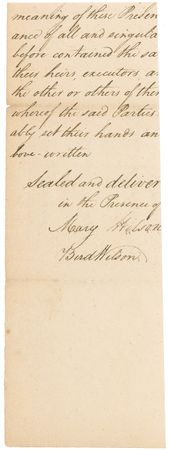 meaning of these Presen
ance of all and singula
before contained the sa
theis heirs, executors, a
the other or others of the
whereof the said Parties
ably set their hands an
bove-written
Sealed and deliver
in the Presence of
Mary Wilson
Bird Wilson